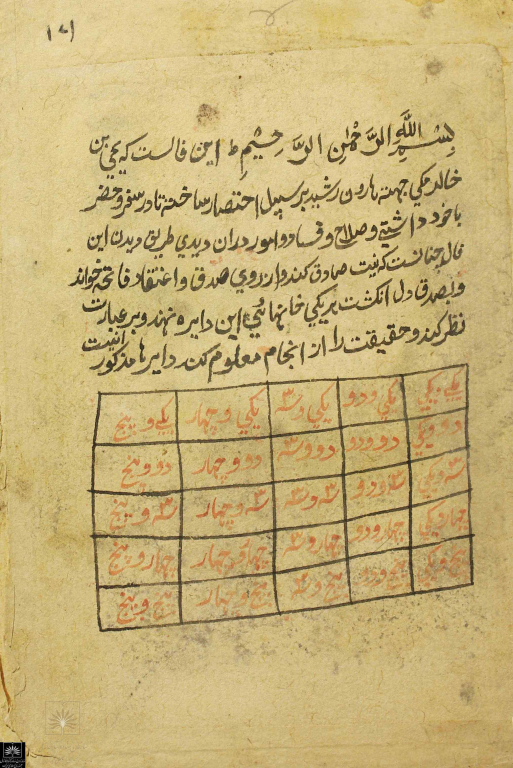 ۱۷۱
بسم الله الرحمن الرحیم این فالست که یحیی بن
خالد مکی جهته هارون رشید بر سبیل اختصار ساخته تا در سفر و حضر
با خود داشتی و صلاح و فساد و امور در ان دیدی طریق دیدن این
فال چنانست که نیت صادق کند و از روی صدق و اعتقاد فاتحه خواند
و بصدق دل انکشت بر یکی خانهای این دایره نهند و بر عبارت
نظر کند و حقیقت را از انجام معلوم کند دایرها مذکور اینست
یکی و یکی یکی و دو یکی و سه یکی و چهار یکی و پنج
دو و یکی دو و دو دو و سه دو و چهار دو و پنج
سه و یکی سه و دو سه و سه سه و چهار سه و پنج
چهار و یکی چهار و دو چهار و سه چهار و چهار چهار و پنج
پنج و یکی پنج و دو پنج و سه پنج و چهار پنج و پنج